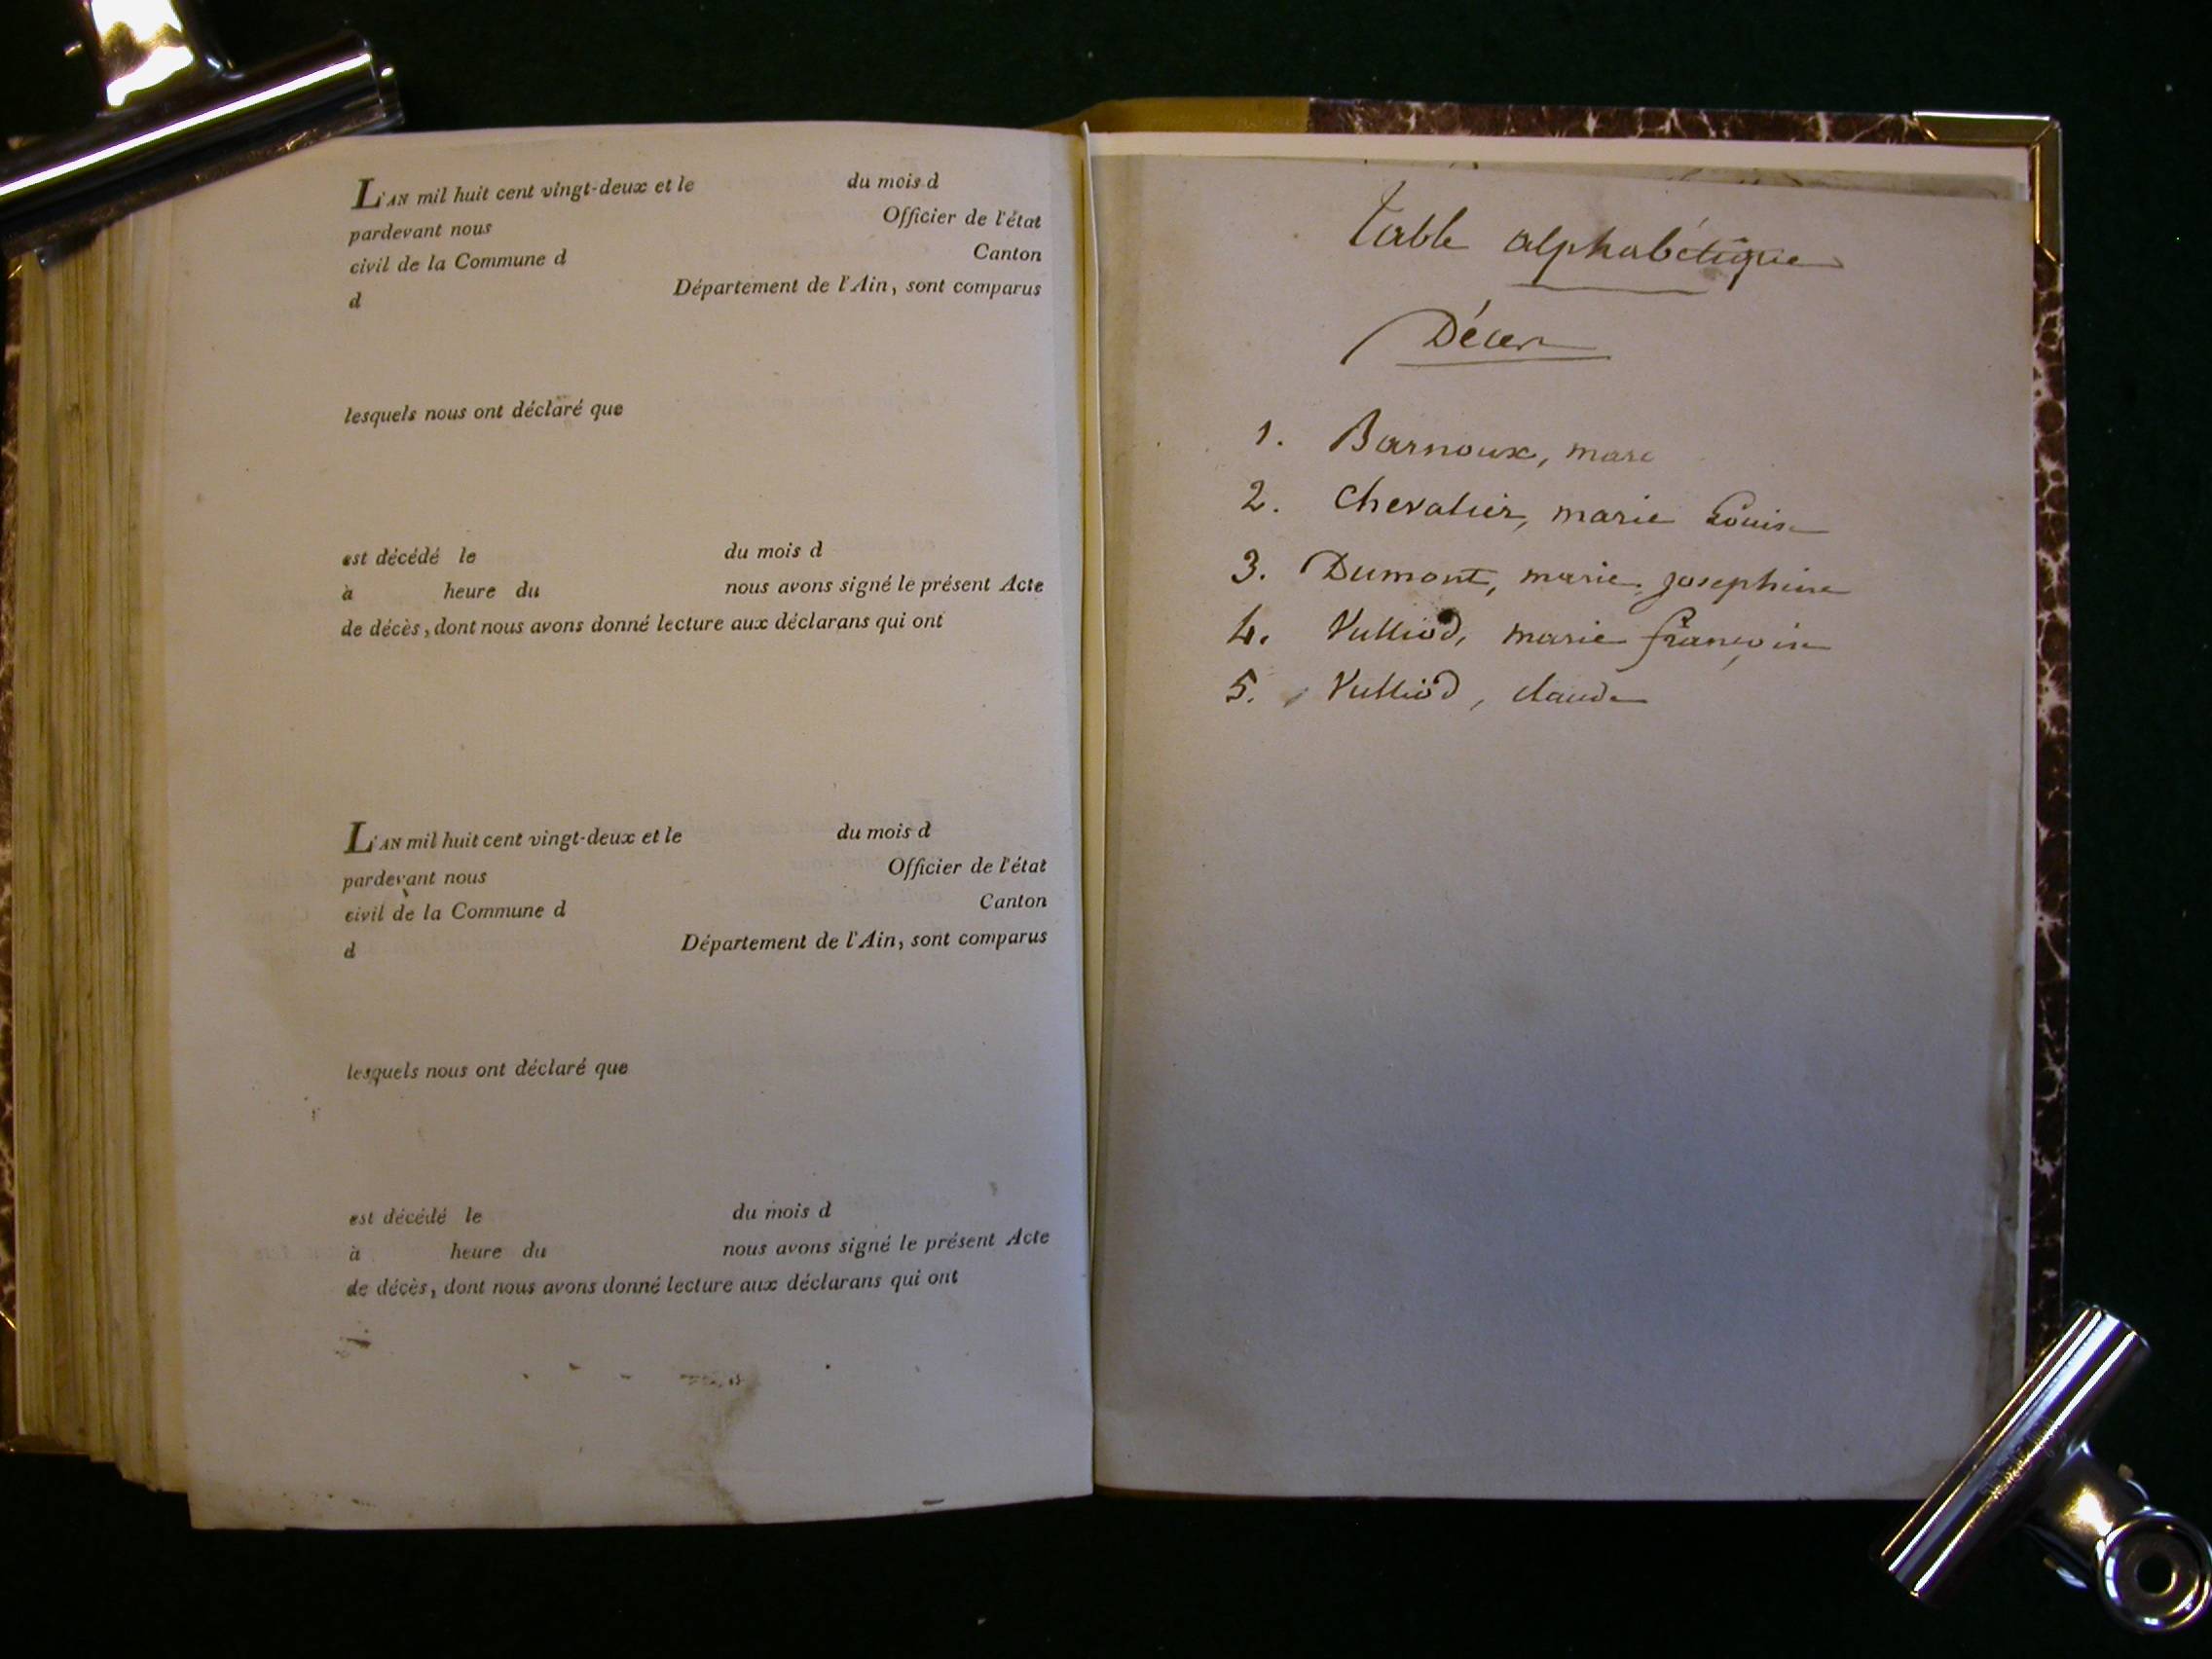 L'AN mil huit cent vingt-deux et le du mois d
pardevant nous Officier de l'état
civil de la Commune d Canton
d Département de l'Ain, sont comparus
lesquels nous ont déclaré que
est décédé le du mois d
à heure du nous avons signé le présent Acte
de décès, dont nous avons donné lecture aux déclarans qui ont
L'AN mil huit cent vingt-deux et le du mois d
pardevant nous Officier de l'état
civil de la Commune d Canton
d Département de l'Ain, sont comparus
lesquels nous ont déclaré que
est décédé le du mois d
à heure du nous avons signé le présent Acte
de décès, dont nous avons donné lecture aux déclarans qui ont
Table alphabétique
Décès
1. Barnoux, marc
2. Chevalier, marie Louise
3. Dumont, marie josephine
4. Vulliod, marie françoise
5. Vulliod, claude